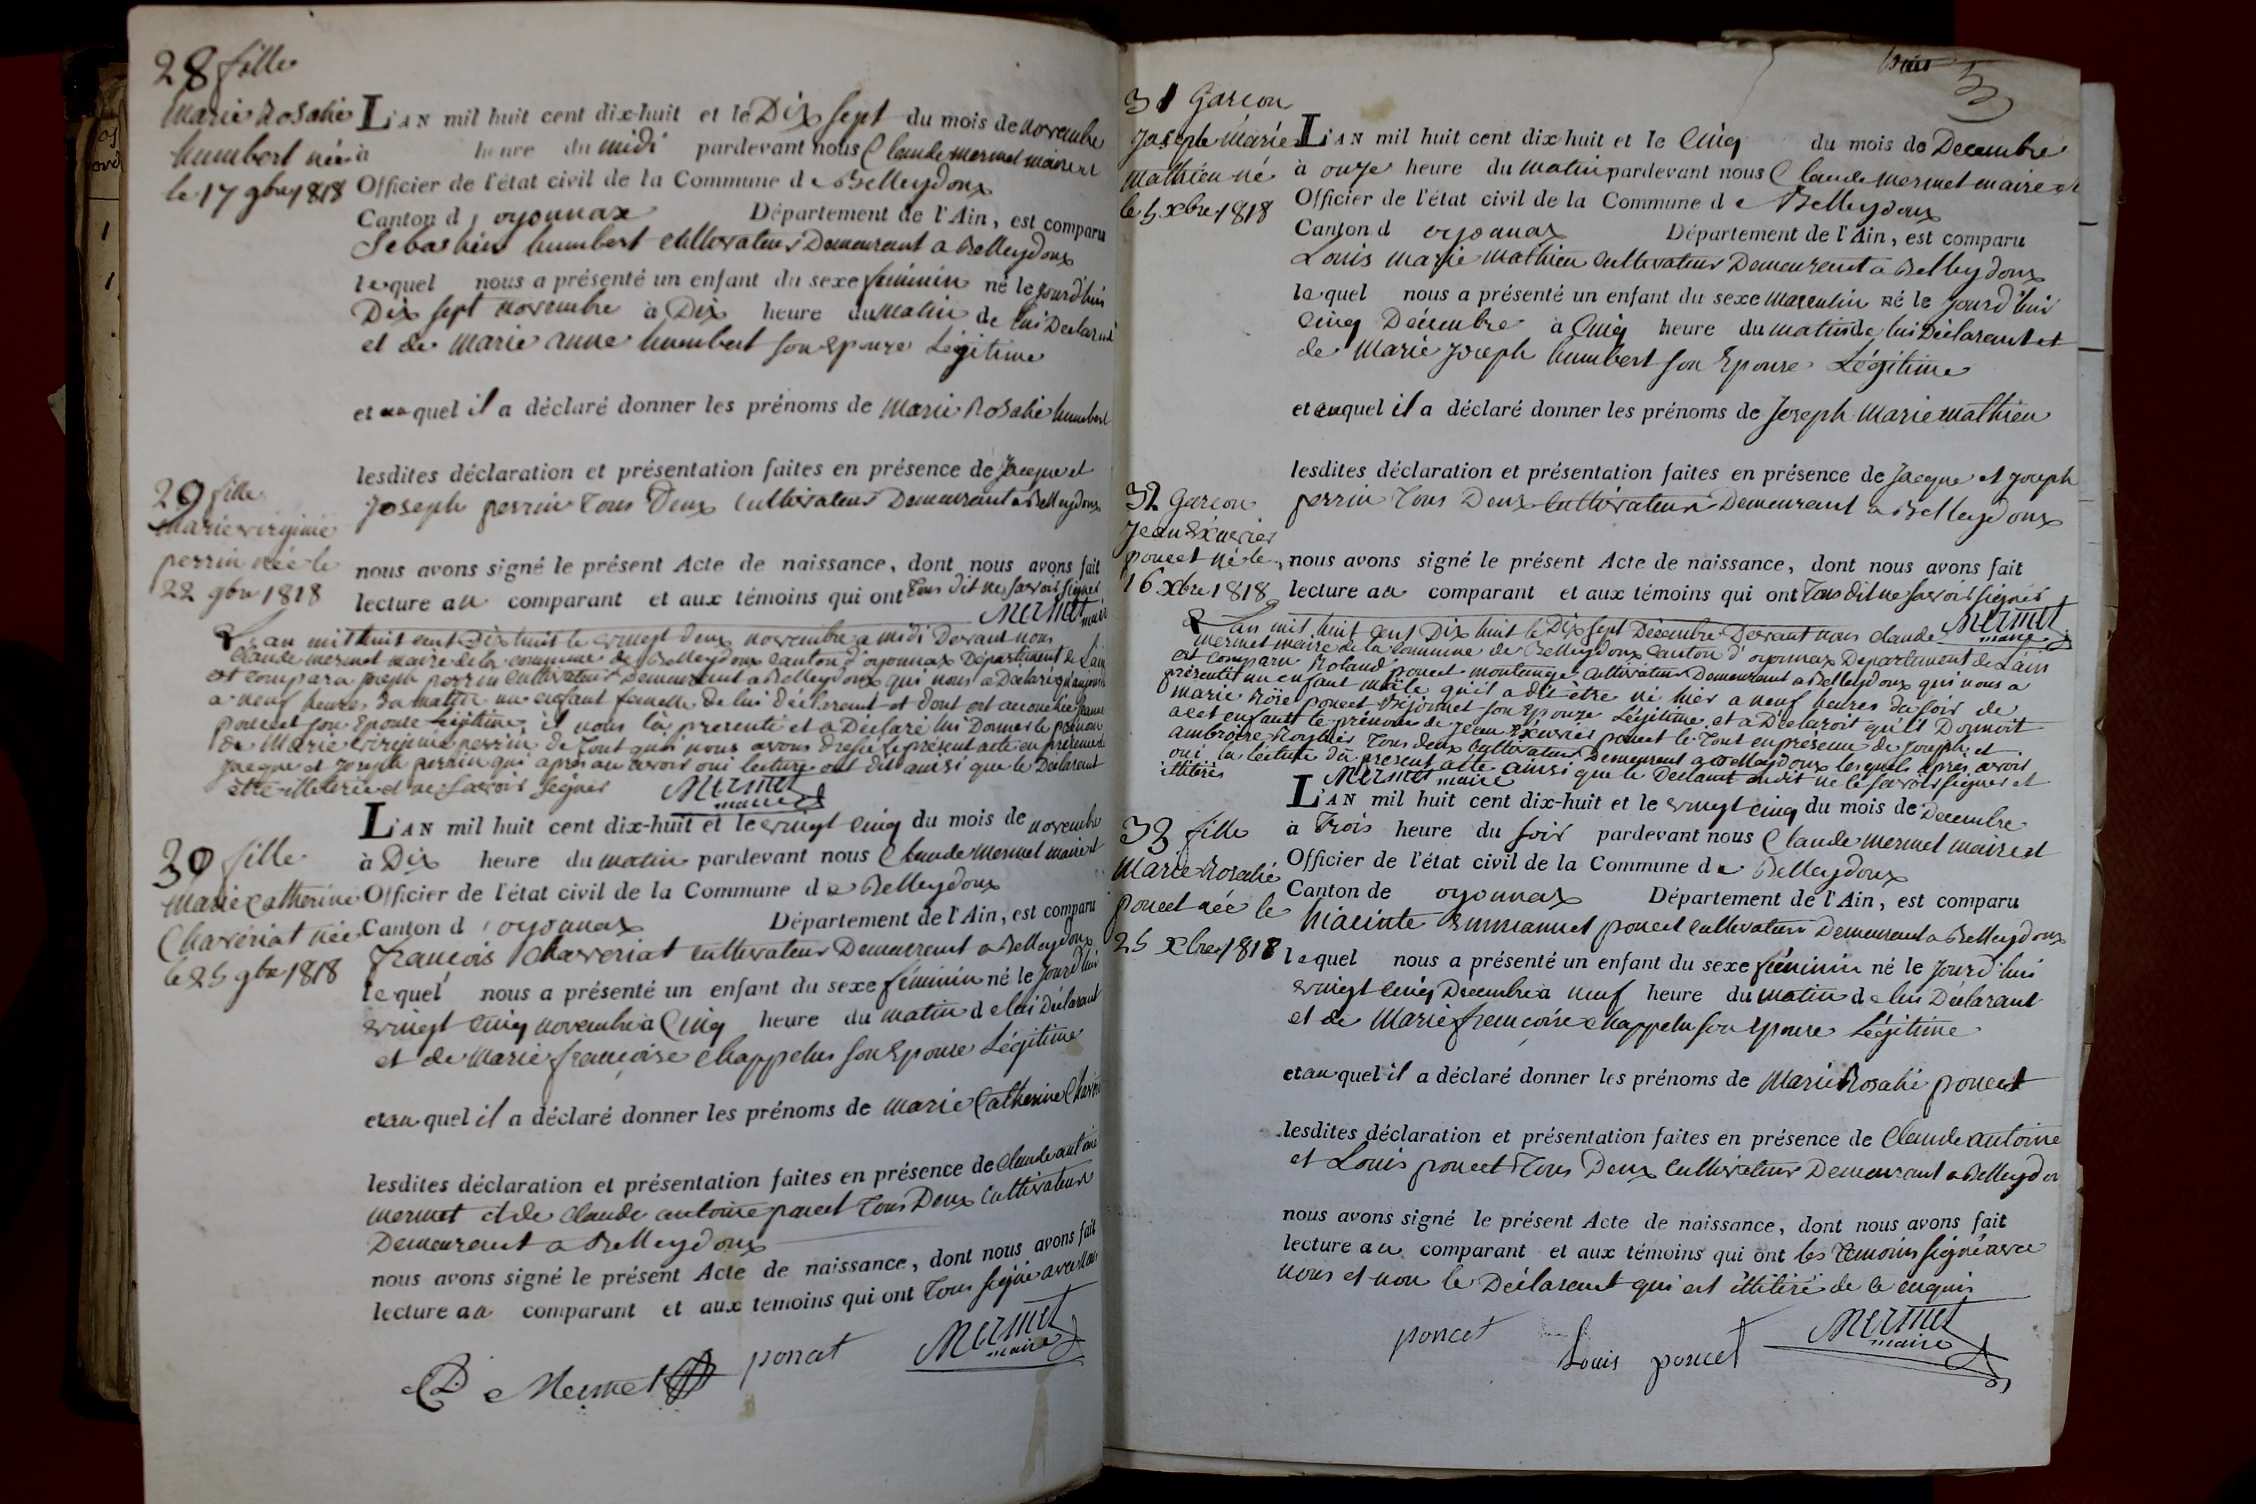 28 fille
Marie Rosalie
humbert née
le 17 9bre 1818
L'AN mil huit cent dix-huit et le Dix sept du mois de novembre
à heure du midi pardevant nous Claude mermet maire et
Officier de l'état civil de la Commune de Belleydoux
Canton d'oyonnax Département de l'Ain, est comparu
Sebastien humbert cultivateur Demeurant a Belleydoux
lequel nous a présenté un enfant du sexe féminin né le jourd'hui
Dix sept novembre à Dix heure du matin de lui Declarant
et de marie anne humbert son Epouze Légitime
et au quel il a déclaré donner les prénoms de Marie Rosalie humbert
lesdites déclaration et présentation faites en présence de Jacque et
Joseph perrin Tous Deux cultivateur Demeurant a Belleydoux
nous avons signé le présent Acte de naissance, dont nous avons fait
lecture au comparant et aux témoins qui ont Tous dit ne savoir signer
Mermet maire
29 fille
Marie virginie
perrin née le
22 9bre 1818
L'an mil huit cent Dix huit le vingt deux novembre a midi Devant nous
Claude mermet maire de la commune de Belleydoux Canton d'oyonnax Département de L'ain
est comparu joseph perrin cultivateur Demeurant a Belleydoux qui nous a Déclaré
a neuf heures du matin un enfant femelle de lui déclarant et dont est accouchée
poncet son Epouse Légitime, il nous l'a presenté et a Déclaré lui Donner le prénom
de Marie virginie perrin de Tout quoi nous avons dressé le présent acte en présence de
jacque et joseph perrin qui après en avoir oui lecture ont dit ainsi que le Declarant
être illitéré et ne savoir signer Mermet
maire
30 fille
Marie Catherine
Chaveriat née
le 25 9bre 1818
L'AN mil huit cent dix-huit et le vingt cinq du mois de novembre
à Dix heure du matin pardevant nous Claude Mermet maire et
Officier de l'état civil de la Commune de Belleydoux
Canton d'oyonnax Département de l'Ain, est comparu
françois Chaveriat cultivateur Demeurant a Belleydoux
lequel nous a présenté un enfant du sexe féminin né le jourd'hui
vingt cinq novembre à Cinq heure du matin de lui Déclarant
et de Marie françoise Chappelus son Epouse Légitime
et au quel il a déclaré donner les prénoms de marie Catherine
lesdites déclaration et présentation faites en présence de Claude antoine
mermet et de Claude antoine poncet Tous Deux Cultivateurs
Demeurant a Belleydoux
nous avons signé le présent Acte de naissance, dont nous avons fait
lecture au comparant et aux témoins qui ont Tous signé avec Nous
Mermet poncet Mermet
maire
3
31 Garcon
Joseph Marie
Mathieu né
le 5 Xbre 1818
L'AN mil huit cent dix-huit et le Cinq du mois de Decembre
à onze heure du matin pardevant nous Claude mermet maire et
Officier de l'état civil de la Commune de Belleydoux
Canton d oyonnax Département de l'Ain, est comparu
Louis marie mathieu cultivateur Demeurant a Belleydoux
lequel nous a présenté un enfant du sexe masculin né le jourd'hui
Cinq Décembre à Cinq heure du matin de lui Déclarant et
de Marie Joseph humbert son Epouse Légitime
et auquel il a déclaré donner les prénoms de Joseph Marie Mathieu
lesdites déclaration et présentation faites en présence de Jacque et joseph
perrin Tous Deux Cultivateur Demeurant a Belleydoux
nous avons signé le présent Acte de naissance, dont nous avons fait
lecture au comparant et aux témoins qui ont Tous dit ne savoir signer
Mermet
maire
32 Garcon
Jean Exavier
poncet né le
16 Xbre 1818
L'an mil huit cent Dix huit le Dix sept Décembre Devant nous claude
mermet maire de la Commune de Belleydoux Canton d'oyonnax Departement de L'ain
est comparu Roland poncet montange cultivateur Demeurant a Belleydoux qui nous a
présenté un enfant mâle qu'il a dit être né hier a neuf heures du soir de
marie Roze poncet Bijonnet son Epouze Légitime et a Déclaroit qu'il Donnoit
a cet enfant le prénom de Jean Exavier poncet le Tout en présence de joseph et
ambroise Tous deux cultivateur Demeurant a Belleydoux lesquels après avoir
oui la lecture du present acte ainsi que le Declarant ondit ne le savoir signer et
illitérés Mermet maire
33 fille
Marie Rosalie
poncet née le
25 Xbre 1818
L'AN mil huit cent dix-huit et le vingt cinq du mois de Decembre
à Trois heure du soir pardevant nous Claude mermet maire et
Officier de l'état civil de la Commune de Belleydoux
Canton de oyonnax Département de l'Ain, est comparu
hiacinte Emmanuel poncet cultivateur Demeurant a Belleydoux
lequel nous a présenté un enfant du sexe féminin né le jourd'hui
vingt cinq Decembre à neuf heure du matin de lui Déclarant
et de Marie françoise chappelu son Epouse Légitime
et au quel il a déclaré donner les prénoms de Marie Rosalie poncet
lesdites déclaration et présentation faites en présence de Claude antoine
et Louis poncet Tous Deux cultivateur Demeurant a Belleydou
nous avons signé le présent Acte de naissance, dont nous avons fait
lecture au comparant et aux témoins qui ont les Temoins signé avec
nous et non le Déclarant qui est illitéré de ce enquis
poncet Louis poncet Mermet
maire